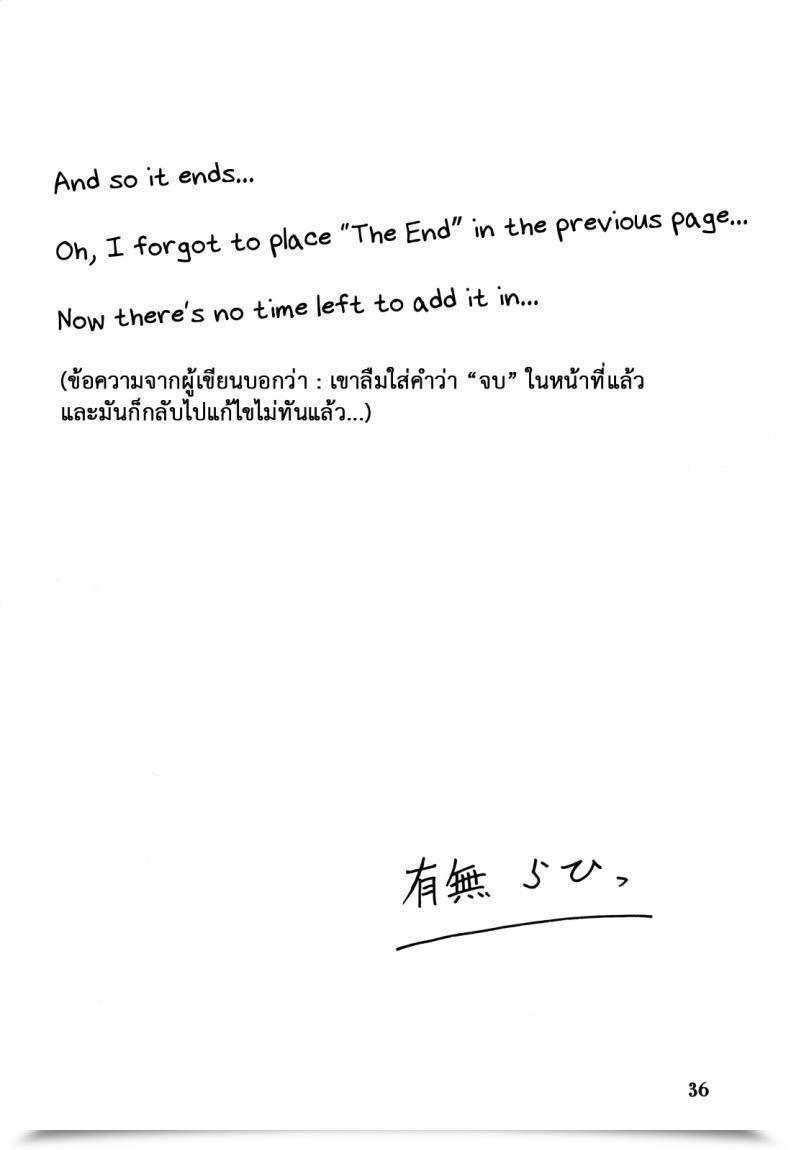 And so it ends...
Oh, I forgot to place "The End" in the previous page...
Now there's no time left to add it in...
(ข้อความจากผู้เขียนบอกว่า : เขาลืมใส่คำว่า “จบ” ในหน้าที่แล้ว
และมันก็กลับไปแก้ไขไม่ทันแล้ว...)
有無 らひっ
36